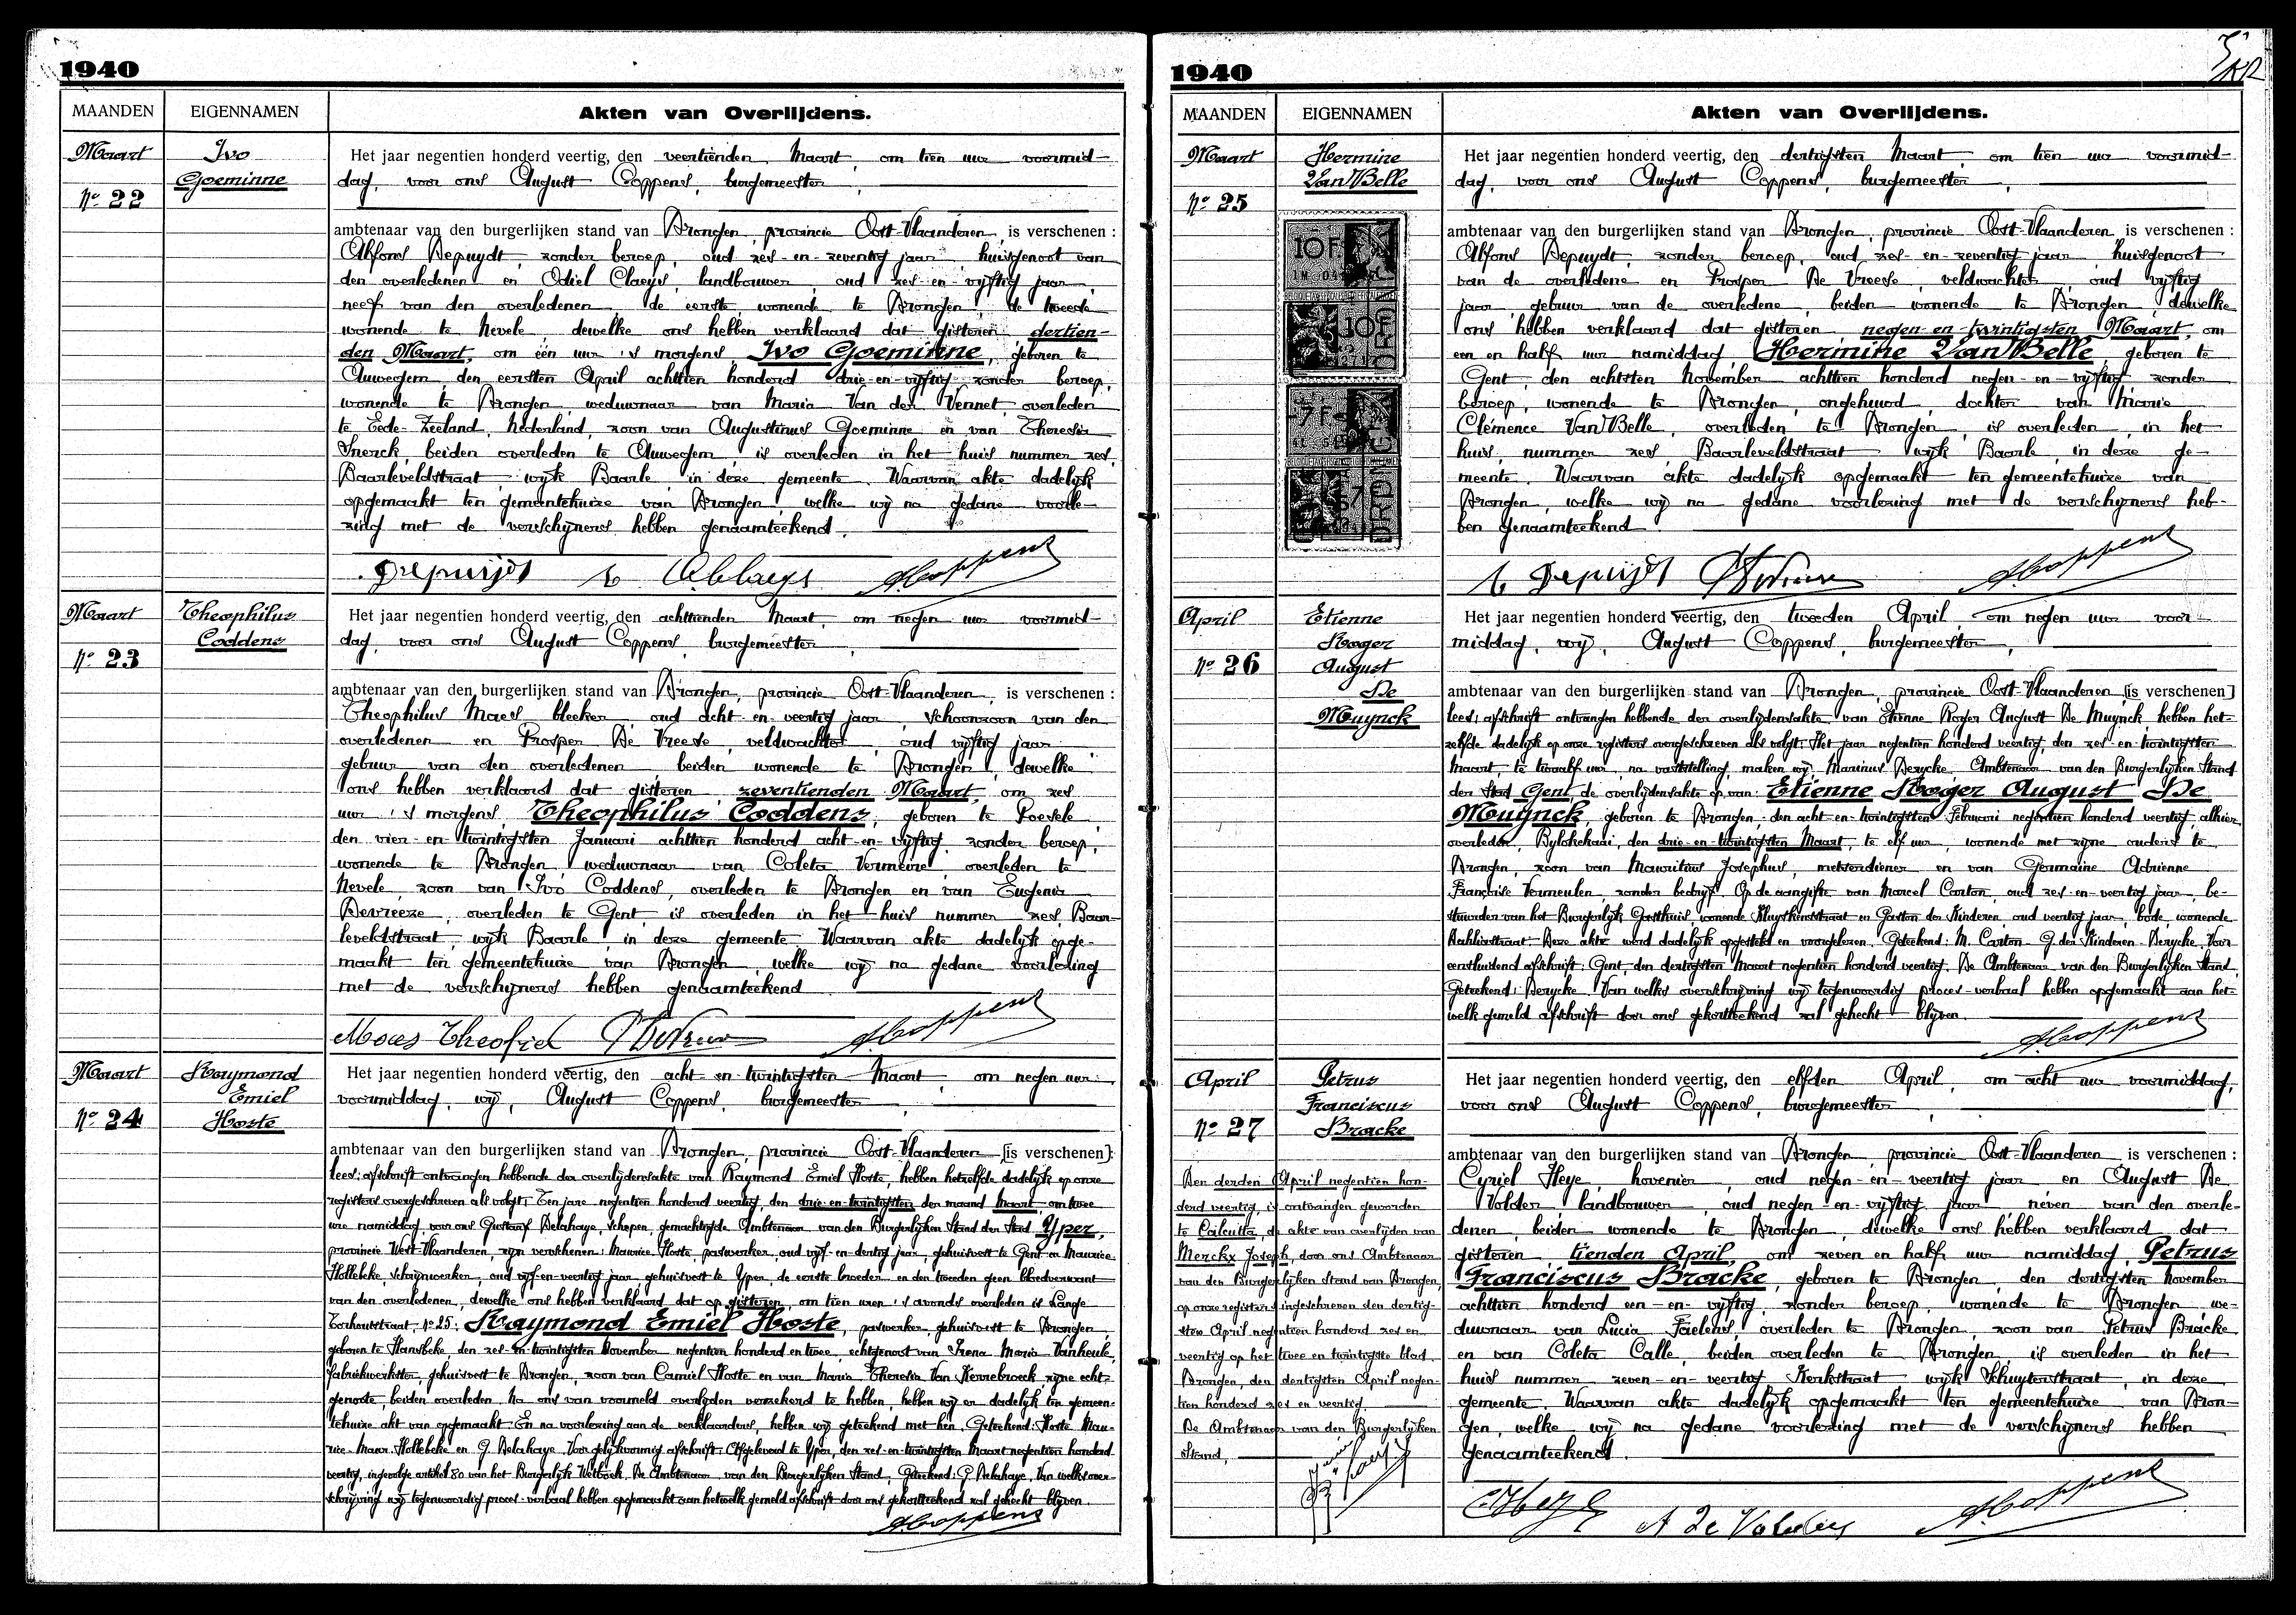 1940
MAANDEN EIGENNAMEN Akten van Overlijdens.
Maart Ivo Goeminne
N° 22
Het jaar negentien honderd veertig, den veertienden Maart, om tien uur voormid-
dag, voor ons August Coppens, burgemeester,
ambtenaar van den burgerlijken stand van Drongen, provincie Oost-Vlaanderen, is verschenen:
Alfons Depuydt, zonder beroep, oud zes-en-zeventig jaar, huisgenoot van
den overledenen en Odiel Claeys, landbouwer, oud zes-en-vijftig jaar,
neef van den overledenen, de eerste wonende te Drongen, de tweede
wonende te Nevele dewelke ons hebben verklaard dat gisteren dertien-
den Maart, om één uur 's morgens, Ivo Goeminne, geboren te
Auwegem, den eersten April achttien honderd drie-en-vijftig zonder beroep,
wonende te Drongen, weduwnaar van Maria Van der Vennet, overleden
te Eede-Zeeland, Nederland, zoon van Augustinus Goeminne en van Theresia
Snerck, beiden overleden te Auwegem, is overleden in het huis nummer zes,
Baarleveldstraat, wijk Baarle, in deze gemeente. Waarvan akte dadelijk
opgemaakt ten gemeentehuize van Drongen, welke wij na gedane voorle-
zing met de verschijners hebben genaamteekend.
Depuijdt Od Claeys ACoppens
Maart Theophilus Coddens
N° 23
Het jaar negentien honderd veertig, den achttienden Maart, om negen uur voormid-
dag, voor ons August Coppens, burgemeester,
ambtenaar van den burgerlijken stand van Drongen, provincie Oost-Vlaanderen, is verschenen:
Theophilus Maes, bleeker, oud acht-en-veertig jaar, schoonzoon van den
overledenen en Prosper De Vreese, veldwachter, oud vijftig jaar,
gebuur van den overledenen beiden wonende te Drongen, dewelke
ons hebben verklaard dat gisteren zeventienden Maart, om zes
uur 's morgens, Theophilus Coddens, geboren te Poesele
den vier-en-twintigsten Januari achttien honderd acht-en-vijftig, zonder beroep,
wonende te Drongen, weduwnaar van Coleta Vermeire, overleden te
Nevele, zoon van Ivo Coddens, overleden te Drongen en van Eugenia
Devreeze, overleden te Gent, is overleden in het huis nummer zes Baar-
leveldstraat, wijk Baarle, in deze gemeente. Waarvan akte dadelijk opge-
maakt ten gemeentehuize van Drongen, welke wij na gedane voorlezing
met de verschijners hebben genaamteekend.
Maes Theofiel ACoppens
Maart Raymond Emiel Hoste
N° 24
Het jaar negentien honderd veertig, den acht en twintigsten Maart, om negen uur,
voormiddag, wij, August Coppens, burgemeester,
ambtenaar van den burgerlijken stand van Drongen, provincie Oost-Vlaanderen [is verschenen]
lees: afschrift ontvangen hebbende der overlijdensakte van Raymond Emiel Hoste, hebben hetzelfde dadelijk op onze
registers overgeschreven als volgt: Ten jare negentien honderd veertig, den drie-en-twintigsten der maand Maart, om twee
ure namiddag, voor ons Gustaaf Delahaye, schepen, gemachtigde Ambtenaar van den Burgerlijken Stand der Stad Yper,
provincie West-Vlaanderen, zijn verschenen: Maurice Hoste, paswerker, oud vijf-en-dertig jaar, gehuisvest te Gent en Maurice
Hollebeke, schrijnwerker, oud vijf-en-veertig jaar, gehuisvest te Yper, de eerste broeder en den tweeden geen bloedverwant
van den overledenen, dewelke ons hebben verklaard dat op gisteren, om tien uren 's avonds overleden is Lange
Torhoutstraat, n° 25, Raymond Emiel Hoste, paswerker, gehuisvest te Drongen,
geboren te Hansbeke, den zes-en-twintigsten November negentien honderd en twee, echtgenoot van Irena Maria Vanheule,
fabriekwerkster, gehuisvest te Drongen, zoon van Camiel Hoste en van Maria Theresia Van Kerrebroeck zijne echt-
genoote, beiden overleden. Na ons van voormeld overlijden verzekerd te hebben, hebben wij er dadelijk ten gemeen-
tehuize akt van opgemaakt. En na voorlezing aan de verklaarders, hebben wij geteekend met hen. Geteekend: Hoste Mau-
rice - Maur. Hollebeke en G. Delahaye. Voor gelijkvormig afschrift: Afgeleverd te Yper, den zes-en-twintigsten Maart negentien honderd
veertig, ingevolge artikel 80 van het Burgerlijk Wetboek. De Ambtenaar van den Burgerlijken Stand, Geteekend: G. Delahaye. Van welks over-
schrijving wij tegenwoordig proces-verbaal hebben opgemaakt aan hetwelk gemeld afschrift door ons gekortteekend zal gehecht blijven.
ACoppens
1940
MAANDEN EIGENNAMEN Akten van Overlijdens.
Maart Hermine Van Belle
N° 25
10F
10F
7F
7F
DRONGEN
Het jaar negentien honderd veertig, den dertigsten Maart, om tien uur voormid-
dag, voor ons August Coppens, burgemeester,
ambtenaar van den burgerlijken stand van Drongen, provincie Oost-Vlaanderen, is verschenen:
Alfons Depuydt, zonder beroep, oud zes-en-zeventig jaar, huisgenoot
van de overledene en Prosper De Vreese, veldwachter, oud vijftig
jaar, gebuur van de overledene, beiden wonende te Drongen, dewelke
ons hebben verklaard dat gisteren negen-en-twintigsten Maart, om
een en half uur namiddag, Hermine Van Belle, geboren te
Gent, den achtsten November achttien honderd negen-en-vijftig, zonder
beroep, wonende te Drongen, ongehuwd, dochter van Marie
Clémence Van Belle, overleden te Drongen, is overleden, in het
huis, nummer zes, Baarleveldstraat wijk Baarle, in deze ge-
meente. Waarvan akte dadelijk opgemaakt ten gemeentehuize van
Drongen, welke wij na gedane voorlezing met de verschijners heb-
ben genaamteekend
Depuijdt ACoppens
April Etienne Roger August De Muynck
N° 26
Het jaar negentien honderd veertig, den tweeden April, om negen uur voor-
middag, wij, August Coppens, burgemeester,
ambtenaar van den burgerlijken stand van Drongen, provincie Oost-Vlaanderen [is verschenen]
lees: afschrift ontvangen hebbende der overlijdensakte van Etienne Roger August De Muynck hebben het-
zelfde dadelijk op onze registers overgeschreven als volgt: Het jaar negentien honderd veertig, den zes-en-twintigsten
Maart, te twaalf uur, na vaststelling, maken wij Marinus Berycke, Ambtenaar van den Burgerlijken Stand
der Stad Gent, de overlijdensakte op van: Etienne Roger August De
Muynck, geboren te Drongen den acht-en-twintigsten Februari negentien honderd veertig, alhier
overleden, Bylokekaai, den drie-en-twintigsten Maart, te elf uur, wonende met zijne ouders te
Drongen, zoon van Mauritius Josephus, metserdiener en van Germaine Adrienne
Françoise Vermeulen, zonder bedrijf. Op de aangifte van Marcel Carton, oud zes-en-veertig jaar, be-
stuurder van het Burgerlijk Gasthuis, wonende Kluyskensstraat en Gaston der Kinderen oud veertig jaar, bode, wonende
Dahliastraat. Deze akte werd dadelijk opgesteld en voorgelezen. Geteekend: M. Carton - G. der Kinderen - Berycke. Voor
eensluidend afschrift: Gent, den dertigsten Maart negentien honderd veertig. De Ambtenaar van den Burgerlijken Stand,
Geteekend: Berycke. Van welks overschrijving wij tegenwoordig proces-verbaal hebben opgemaakt aan het-
welk gemeld afschrift door ons gekortteekend zal gehecht blijven.
ACoppens
April Petrus Franciscus Bracke
N° 27
Den derden April negentien hon-
derd veertig is ontvangen geworden
te Calcutta de akte van overlijden van
Merckx Joseph, door ons Ambtenaar
van den Burgerlijken Stand van Drongen,
op onze registers ingeschreven den dertig-
sten April negentien honderd zes en
veertig op het twee en twintigste blad.
Drongen, den dertigsten April negen-
tien honderd zes en veertig.
De Ambtenaar van den Burgerlijken
Stand,
Het jaar negentien honderd veertig, den elfden April, om acht uur voormiddag,
voor ons August Coppens, burgemeester,
ambtenaar van den burgerlijken stand van Drongen, provincie Oost-Vlaanderen, is verschenen:
Cyriel Heye, hovenier, oud negen-en-veertig jaar en August De
Volder, landbouwer, oud negen-en-vijftig jaar, neven van den overle-
denen, beiden wonende te Drongen, dewelke ons hebben verklaard dat
gisteren tienden April, om zeven en half uur namiddag, Petrus
Franciscus Bracke, geboren te Drongen, den dertigsten November
achttien honderd een-en-vijftig, zonder beroep, wonende te Drongen we-
duwnaar van Lucia Faelens, overleden te Drongen, zoon van Petrus Bracke
en van Coleta Calle, beiden overleden te Drongen is overleden in het
huis nummer zeven-en-veertig Kerkstraat wijk Schuyterstraat, in deze
gemeente. Waarvan akte dadelijk opgemaakt ten gemeentehuize van Dron-
gen, welke wij na gedane voorlezing met de verschijners hebben
genaamteekend.
CHeye A De Volder ACoppens